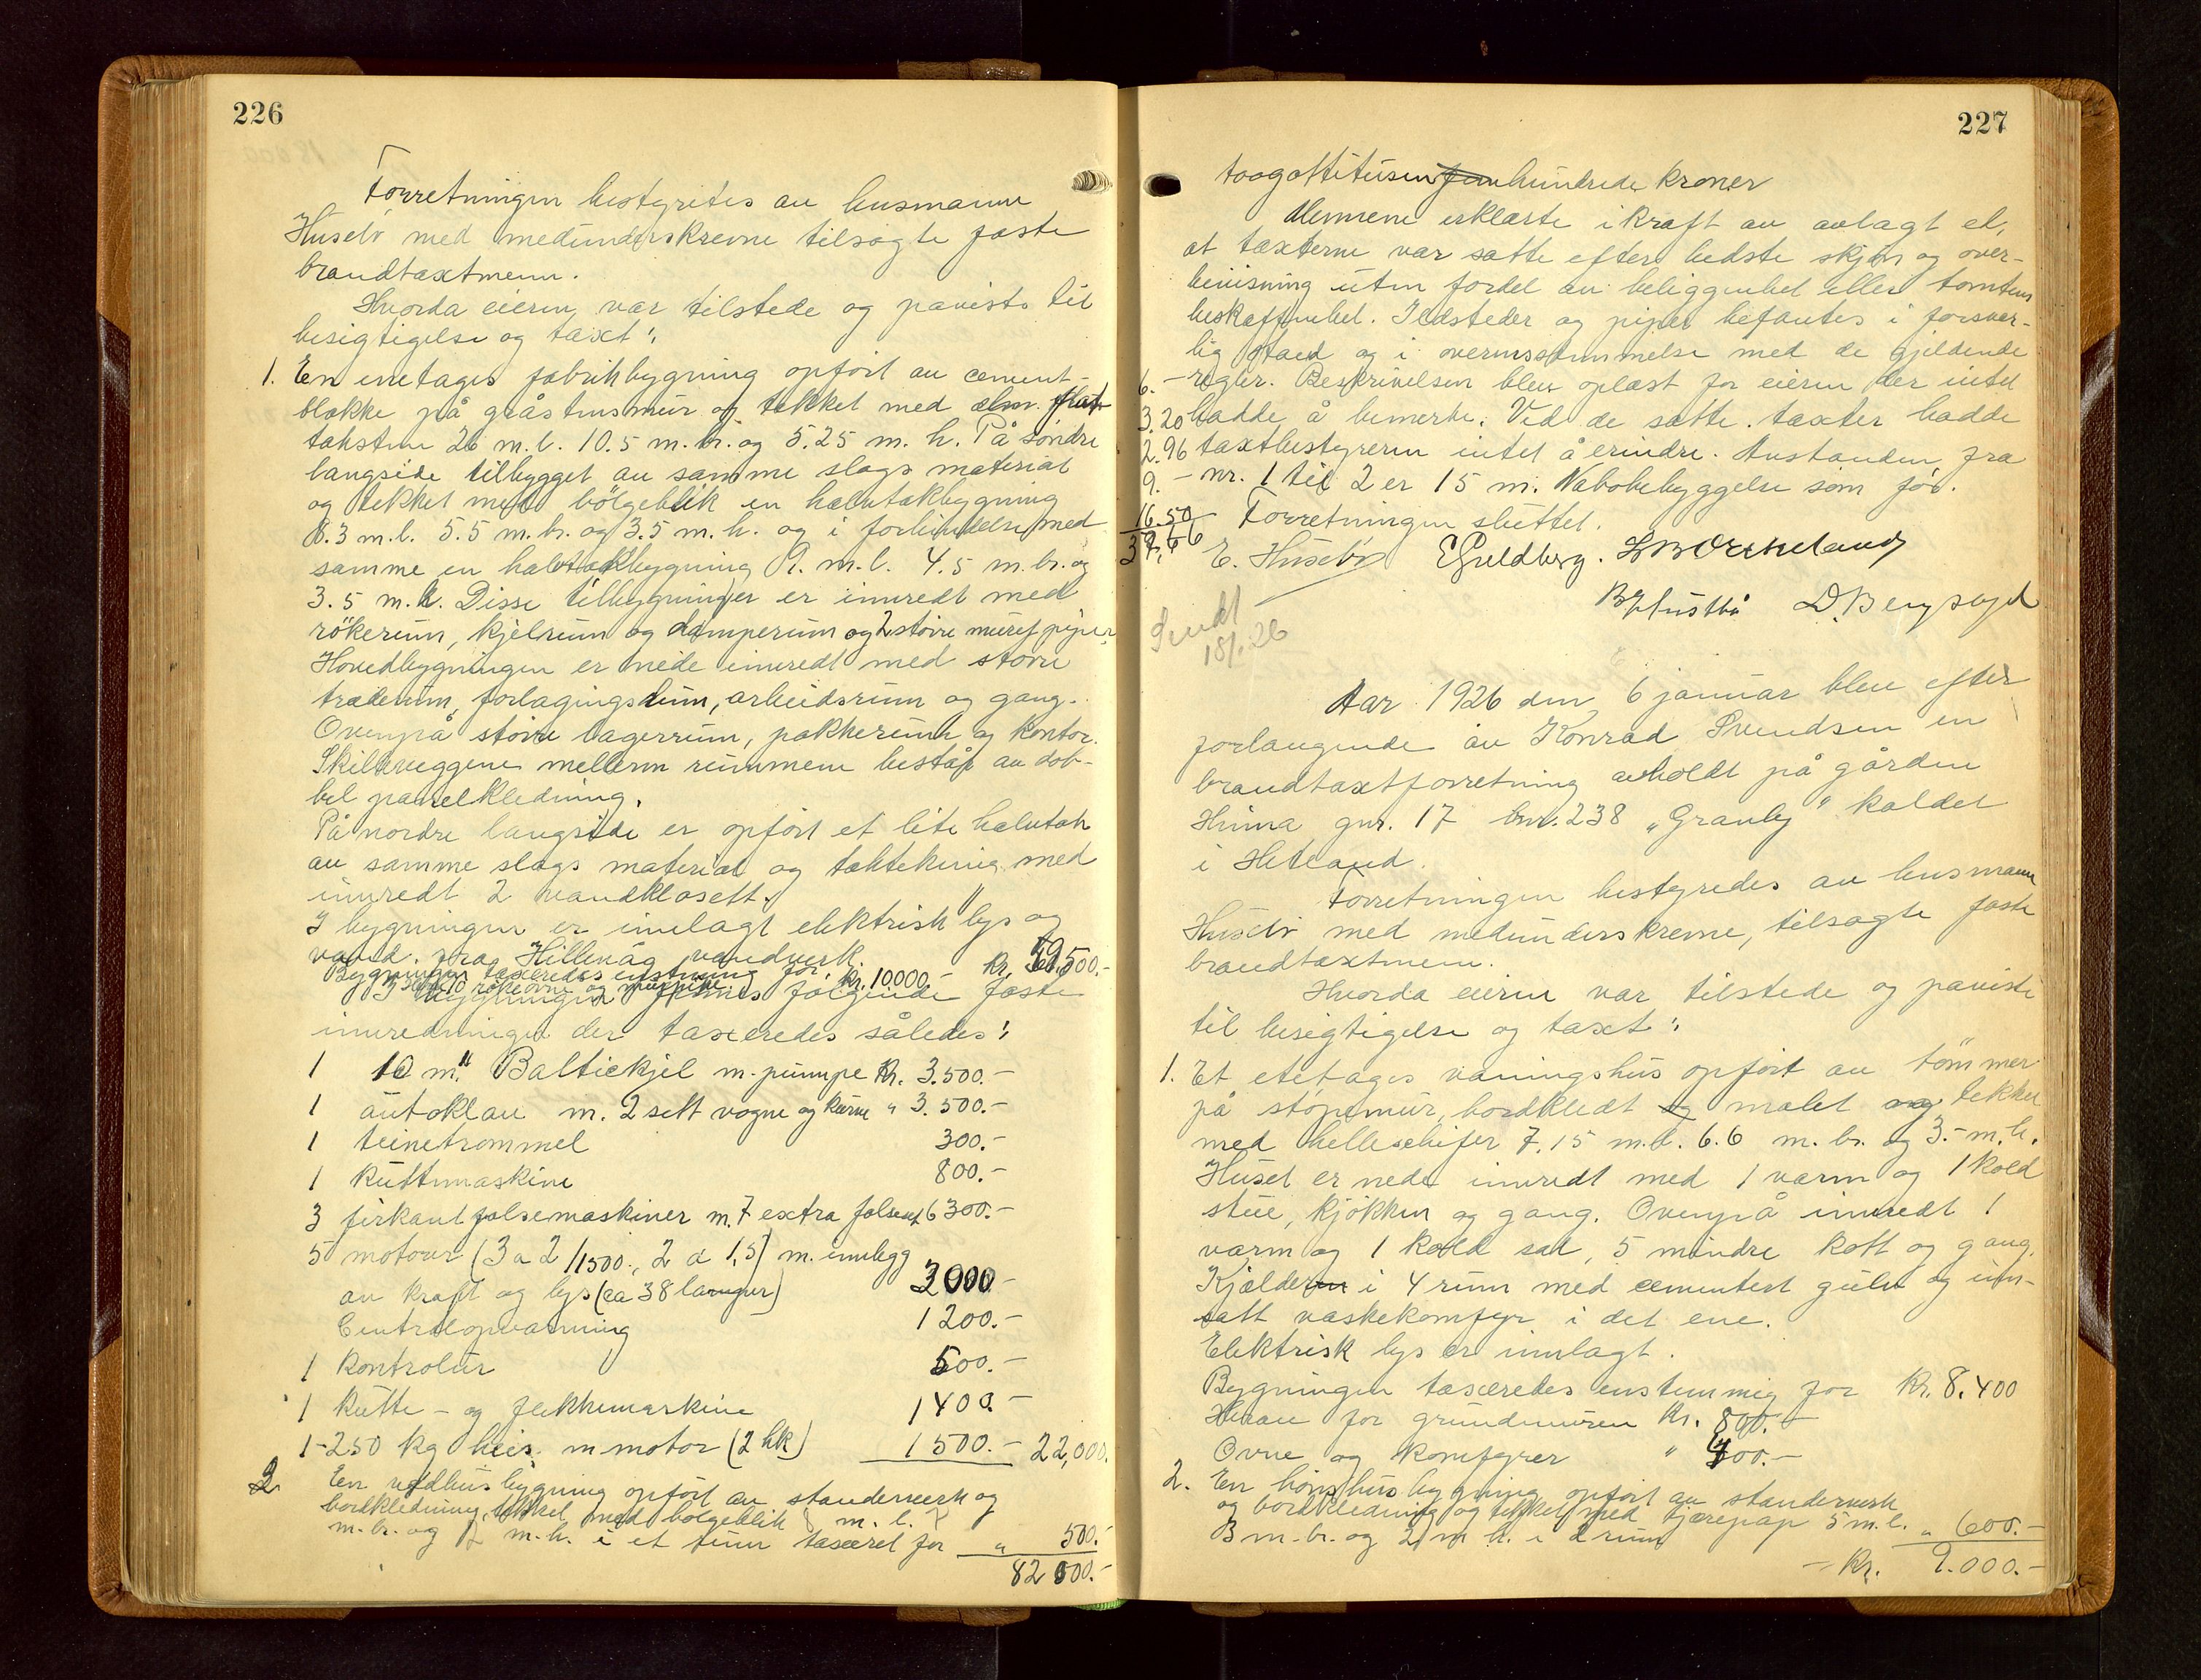 226
Forretningen bestyredes av husmann
Husebø med medunderskrevne tilsagte faste
brandtaxtmenn.
Hvorda eieren var tilstede og paviste til
besigtigelse og taxt:
1. En enetages fabrikbygning opført av cement-
blokke på gråstensmur og tekket med flat
taksten 26 m.l. 10.5 m.br. og 5.25 m.h. På søndre
langside tilbygget av samme slags material
og tekket med bölgeblik en halvtakbygning
8.3 m.l. 5.5 m.br. og 3.5 m.h. og i forbindelse med
samme en halvtakbygning 9. m.l. 4.5 m.br. og
3.5 m.h. Disse tilbygninger er innredt med
rökerum, kjelrum og damperum og 2 större murte piper.
Hovedbygningen er nede innredt med större
træderum, forlagingsrum, arbeidsrum og gang.
Ovenpå större lagerrum, pakkerum og kontor.
Skilleveggene mellem rummene består av dob-
bel panelkledning.
På nordre langside er opført et lite halvtak
av samme slags material og taktekning med
innredt 2 vandklosett.
I bygningen er innlagt elektrisk lys og
vand fra Hillevåg vandverk.
Bygningen taxeredes enstemmig for kr. 59.500.-
10 rökeovne og murpipe kr. 10000.-
I bygningen finnes følgende faste
innredninger der taxeredes således:
1 10 m." Baltickjel m. pumpe Kr. 3.500.-
1 autoklav m. 2 sett vogne og kurve " 3.500.-
1 teinetrommel 300.-
1 kuttmaskine 800.-
3 firkant falsemaskiner m. 7 extra falsesett 6300.-
5 motorer (3 a 2/1500., 2 a 1,5) m. innlegg
av kraft og lys (ca 38 lamper) 3000-
Centralopvarming 1200.-
1 Kontrolur 500.-
1 Kutte- og flekkemaskine 1400.-
1-250 kg heis m motor (2 hk) 1500.- 22,000.
2. En vedhusbygning opført av standerverk og
bordkledning, tekket med bølgeblik m.l.
m.br. og 2 m.h. i et rum taxeret for " 500.-
82000.-
227
toogottitusen hundrede kroner
Mennene erklærte i kraft av avlagt ed,
at taxterne var satte efter bedste skjøn og over-
bevisning uten fordel av beliggenhet eller tomtens
beskaffenhet. Ildsteder og piper befantes i forsvar-
lig stand og i overensstemmelse med de gjeldende
6.- regler. Beskrivelsen blev oplæst for eieren der intet
3.20 hadde å bemerke. Ved de satte taxter hadde
2.96 taxtbestyreren intet å erindre. Avstanden fra
9.- nr. 1 til 2 er 15 m. Nabobebyggelse som før.
16.50 Forretningen sluttet.
37,66 E. Husebø E Guldberg.
D. Bergsagel
Sendt
18/1.26
Aar 1926 den 6 januar blev efter
forlangende av Konrad Svendsen en
brandtaxtforretning avholdt på gården
Hinna gnr. 17 bnr. 238 „Granly" kaldet
i Hetland.
Forretningen bestyredes av husmann
Husebø med medunderskrevne, tilsagte faste
brandtaxtmenn.
Hvorda eieren var tilstede og paviste
til besigtigelse og taxt:
1. Et etetages våningshus opført av tömmer
på stöpemur, bordkledt og malet og tekket
med helleskifer 7,15 m.l. 6.6 m.br. og 3.- m.h.
Huset er nede innredt med 1 varm og 1 kold
stue, kjökken og gang. Ovenpå innredt 1
varm og 1 kold sal, 5 mindre kott og gang.
Kjælder i 4 rum med cementert gulv og inn-
satt vaskekomfyr i det ene.
Elektrisk lys er innlagt.
Bygningen taxeredes enstemmig for Kr. 8.400
Herav for grundmuren Kr. 800.-
Ovne og komfyrer " 400.-
2. En hönsehusbygning opført av standerverk
og bordkledning og tekket med tjærepap 5 m.l.
3 m.br. og 2 m.h. i 2 rum " 600.-
- Kr. 9.000.-